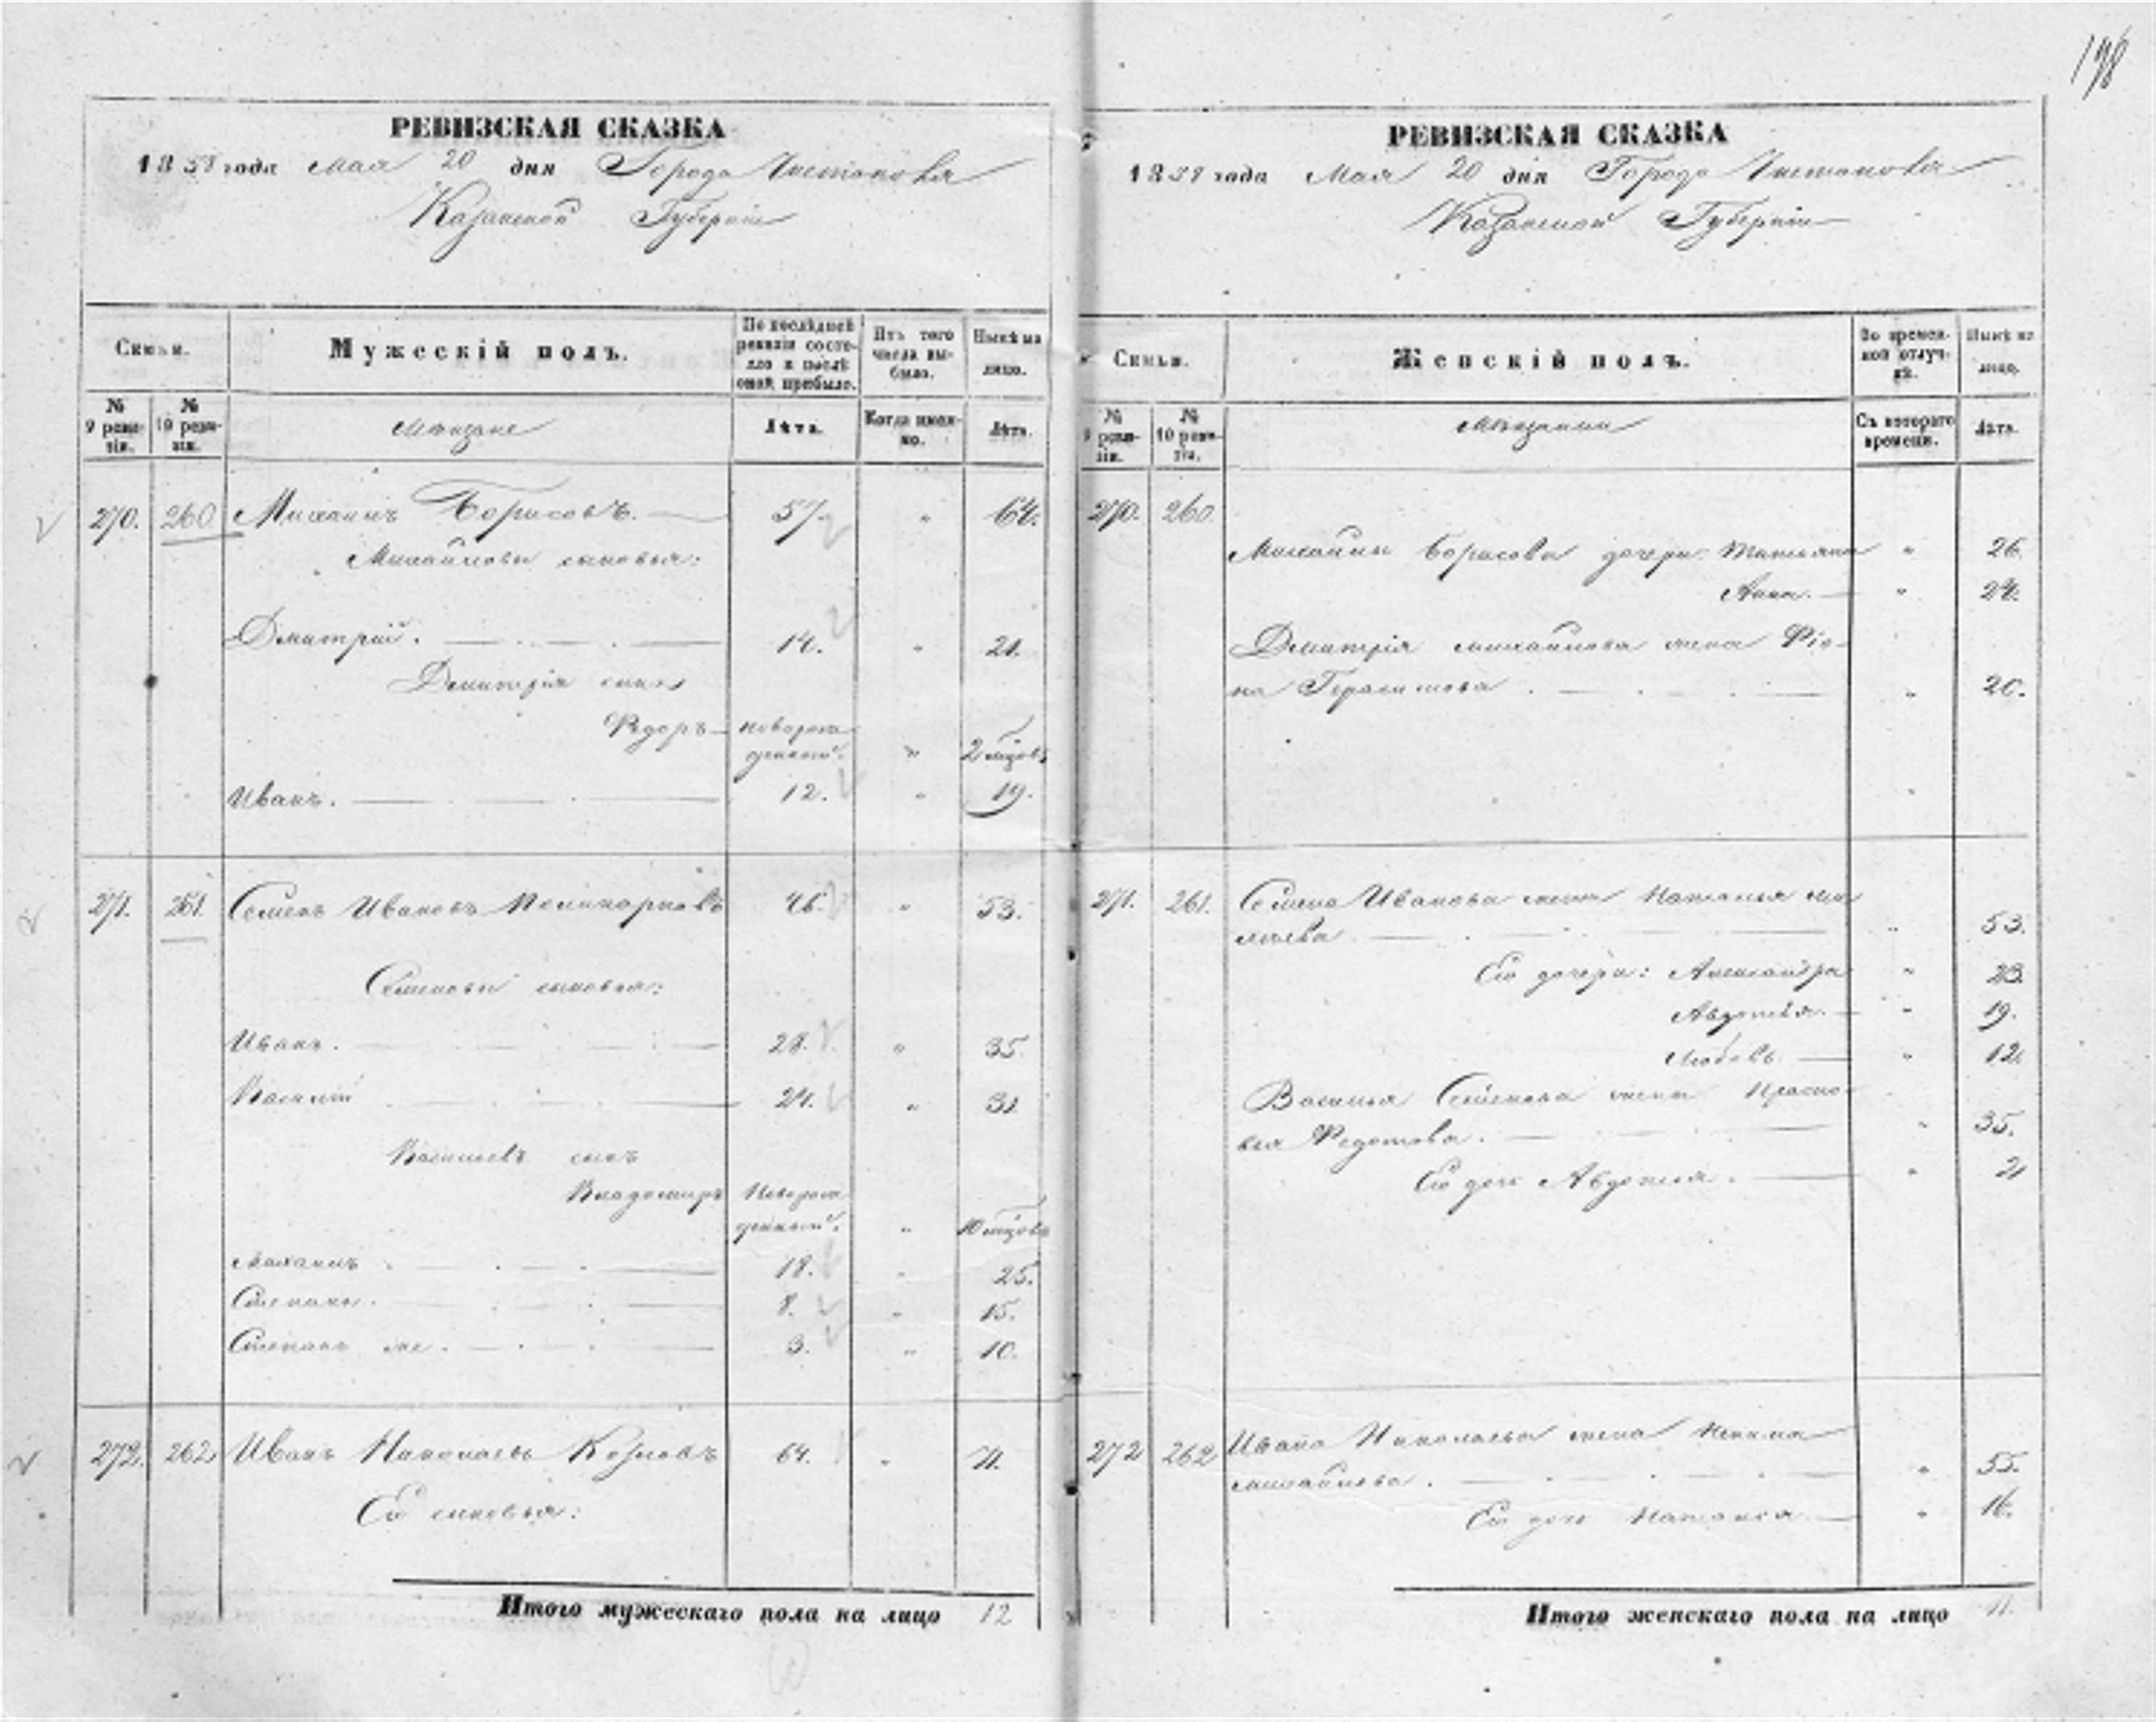 198
РЕВИЗСКАЯ СКАЗКА
1858 года Мая 20 дня Города Чистополя
Казанской Губерніи
Семьи.
Мужескій полъ.
По послѣдней ревизіи состояло и послѣ оной прибыло.
Изъ того числа выбыло.
Нынѣ на лицо.
№ 9 ревизіи.
№ 10 ревизіи.
Мѣщане
Лѣта.
Когда именно.
Лѣта.
270. 260 Михаилъ Борисовъ. 57. " 64.
Михайловы сыновья:
Дмитрій. 14. " 21.
Дмитрія сынъ
Ѳедоръ новорож
денный. " 2 мѣсяцовъ
Иванъ. 12. " 19.
271. 261. Семенъ Ивановъ 46. " 53.
Семеновы сыновья:
Иванъ. 28. " 35.
Василій 24. " 31
Васильевъ сынъ
Владимиръ Новорож
денный. " 10 мѣсяцовъ
Михаилъ 18. " 25.
Степанъ. 8. " 15.
Степанъ же. 3. " 10.
272. 262 Иванъ Николаевъ 64. " 71.
Его сыновья:
Итого мужескаго пола на лицо 12
РЕВИЗСКАЯ СКАЗКА
1858 года Мая 20 дня Города Чистополя
Казанской Губерніи
Семьи.
Женскій полъ.
Во временной отлучкѣ.
Нынѣ на лицо.
№ 9 ревизіи.
№ 10 ревизіи.
Мѣщанки
Съ котораго времени.
Лѣта.
270. 260
Михайлы Борисова дочери: Татьяна " 26.
Анна. " 24.
Дмитрія Михайлова жена Ѳіо-
на Герасимова. " 20.
271. 261. Семена Иванова жена Наталья
" 53.
Его дочери: Александра " 23
Авдотья. " 19.
Любовь. " 12
Василья Семенова жена Праско-
вья Ѳедотова. " 35.
Его дочь Авдотья. " 2
272 262 Ивана Николаева жена
Михайлова. " 55.
Его дочь Наталья " 16.
Итого женскаго пола на лицо 11.